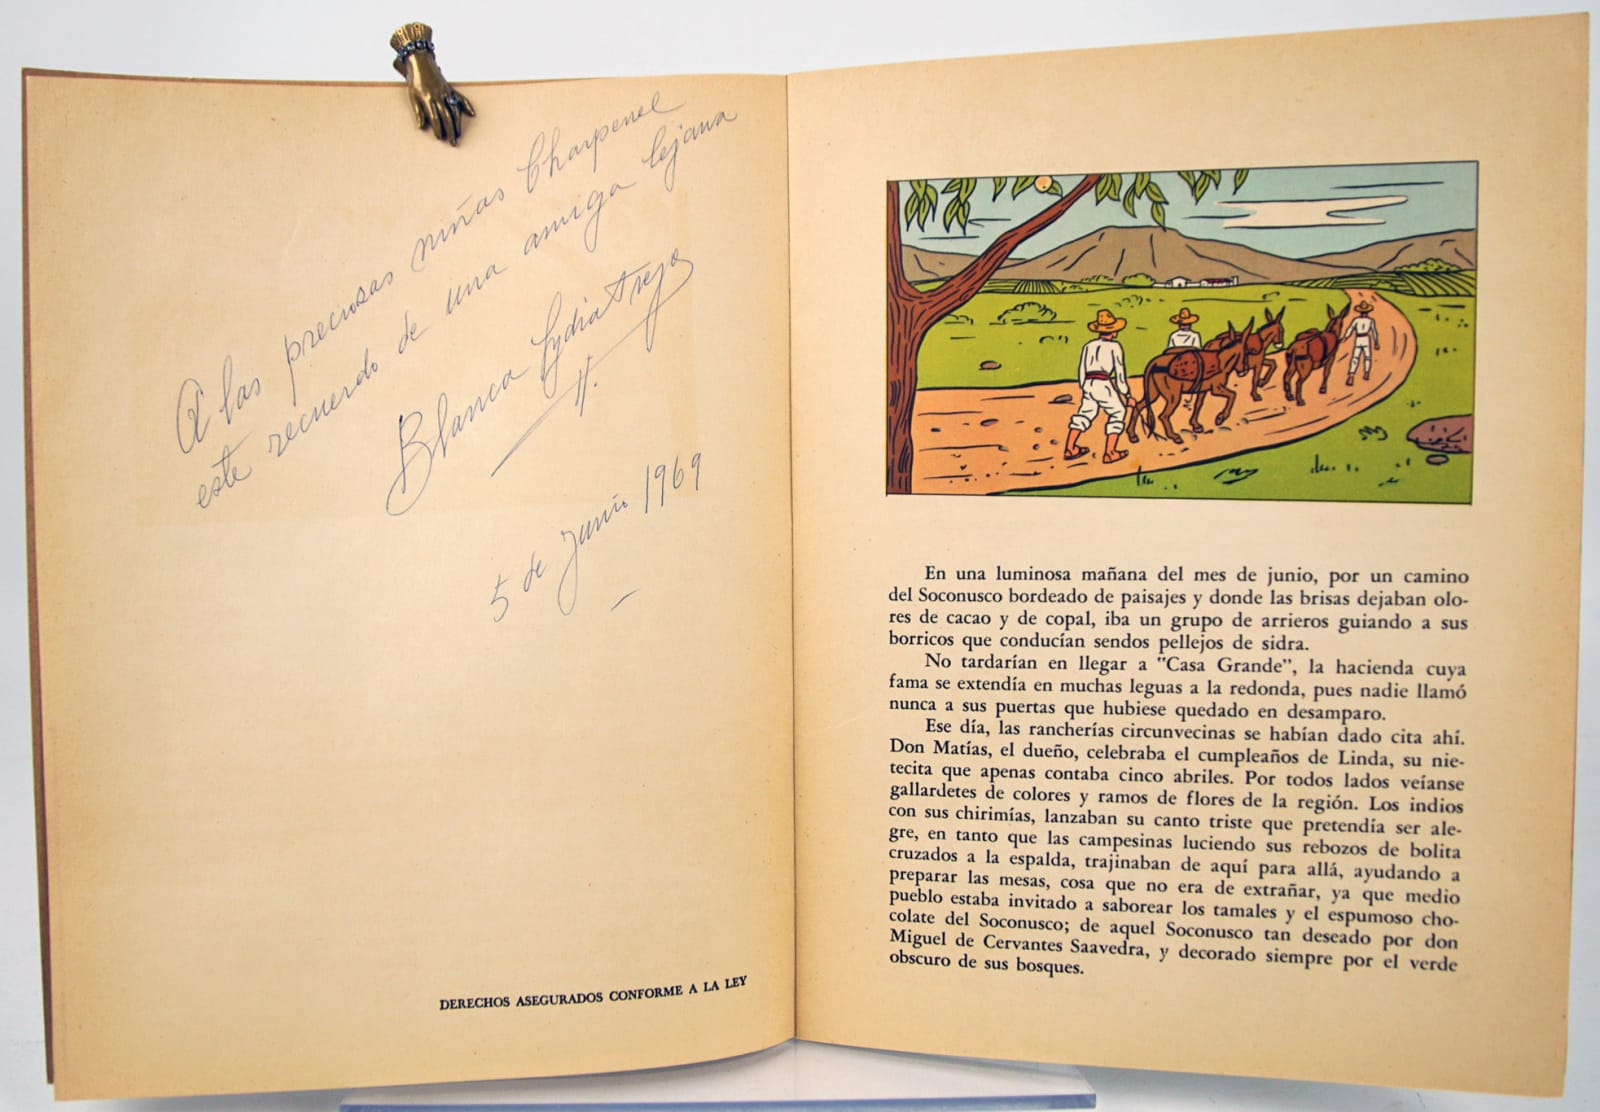 A las preciosas niñas Charpenel
este recuerdo de una amiga lejana
Blanca Lydia Trejo
5 de Junio 1969
DERECHOS ASEGURADOS CONFORME A LA LEY
En una luminosa mañana del mes de junio, por un camino
del Soconusco bordeado de paisajes y donde las brisas dejaban olo-
res de cacao y de copal, iba un grupo de arrieros guiando a sus
borricos que conducían sendos pellejos de sidra.
No tardarían en llegar a "Casa Grande", la hacienda cuya
fama se extendía en muchas leguas a la redonda, pues nadie llamó
nunca a sus puertas que hubiese quedado en desamparo.
Ese día, las rancherías circunvecinas se habían dado cita ahí.
Don Matías, el dueño, celebraba el cumpleaños de Linda, su nie-
tecita que apenas contaba cinco abriles. Por todos lados veíanse
gallardetes de colores y ramos de flores de la región. Los indios
con sus chirimías, lanzaban su canto triste que pretendía ser ale-
gre, en tanto que las campesinas luciendo sus rebozos de bolita
cruzados a la espalda, trajinaban de aquí para allá, ayudando a
preparar las mesas, cosa que no era de extrañar, ya que medio
pueblo estaba invitado a saborear los tamales y el espumoso cho-
colate del Soconusco; de aquel Soconusco tan deseado por don
Miguel de Cervantes Saavedra, y decorado siempre por el verde
obscuro de sus bosques.